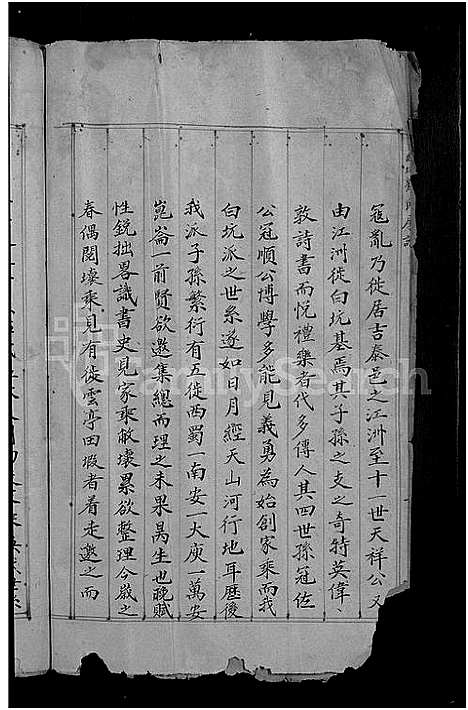 寇亂乃徙居吉泰邑之江洲至十一世天祥公又
由江洲徙白坑基焉其子孫之支之奇特英偉丶
敦詩書而悅禮樂者代多傳人其四世孫冠佐
公冠順公博學多能見義勇為始創家乘而我
白坑派之世系遂如日月經天山河行地耳歷後
我派子孫繁衍有五徙西蜀一南安一火庾一萬安
崑崙一前賢欲邀集總而理之未果昺生也晚賦
性銳拙畧識書史見家乘敝壞累欲整理今歲之
春偶閱壞乘見有徙雲亭田塅者着走邀之而
FamilySearch